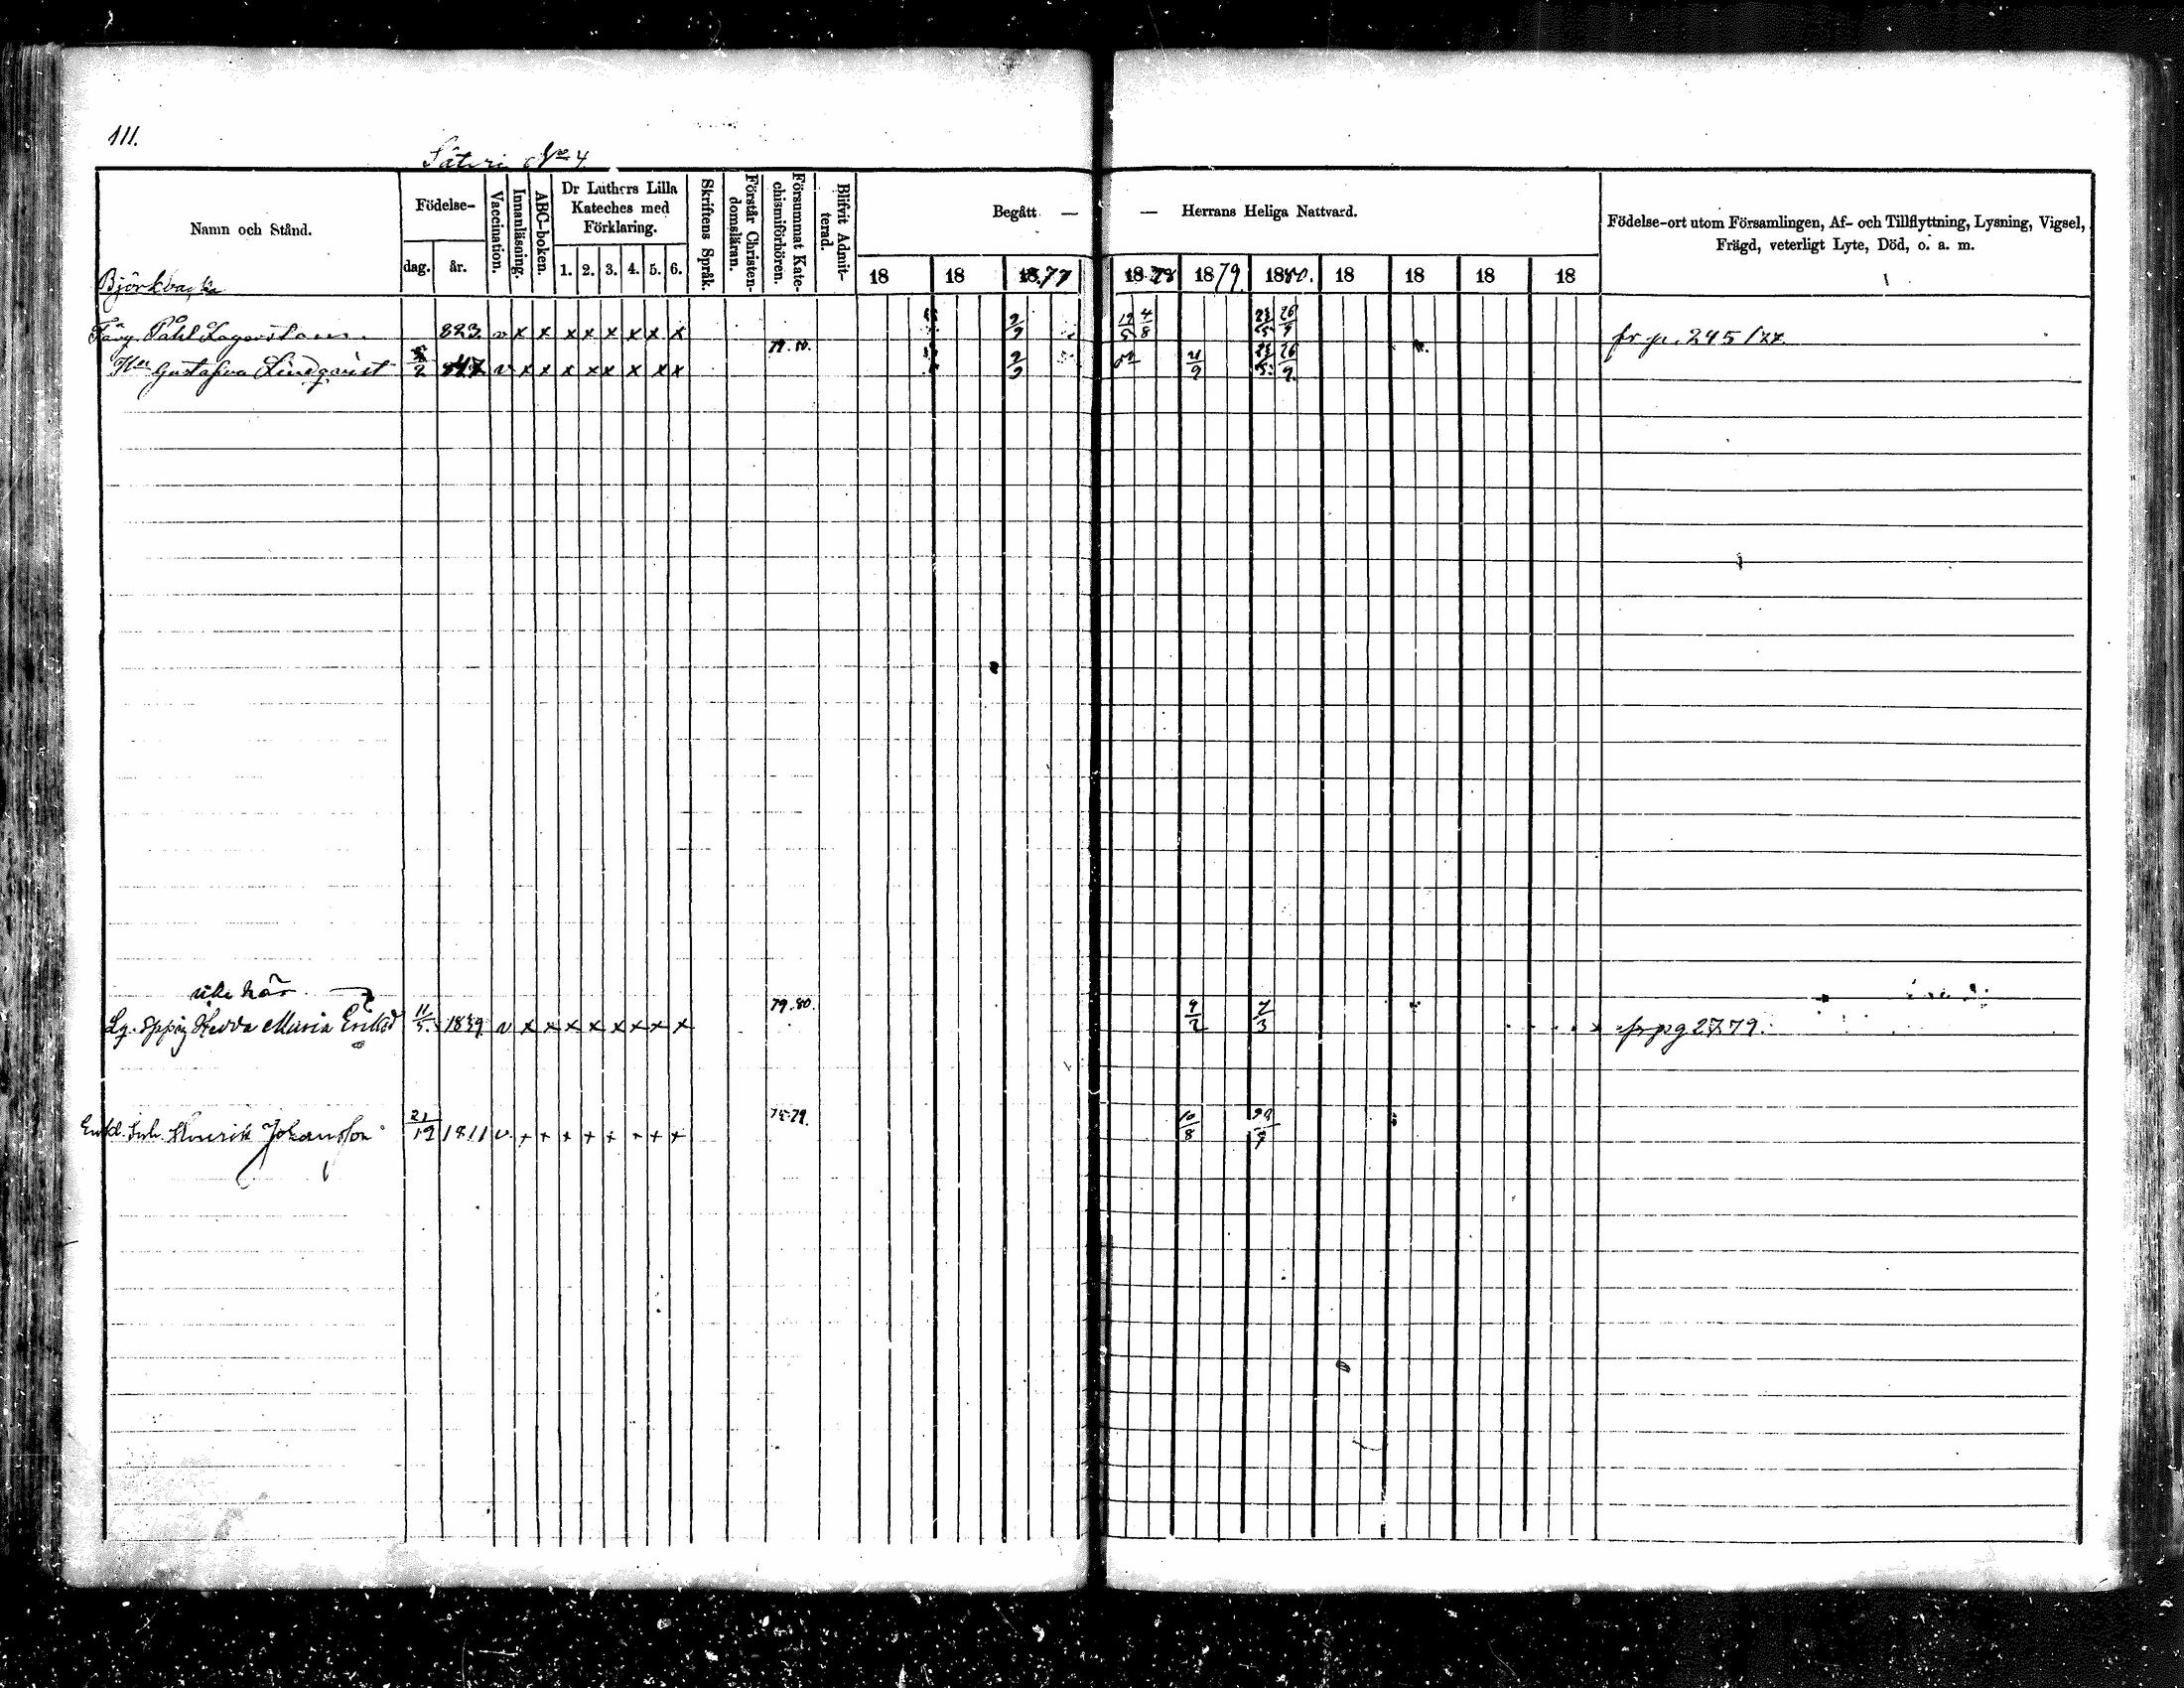 111.
Säteri No 4
Namn och Stånd.
Födelse-
dag.
år.
Vaccination.
Innanläsning.
ABC-boken.
Dr Luthers Lilla
Kateches med
Förklaring.
1. 2. 3. 4. 5. 6.
Skriftens Språk.
Förstår Christen-
domsläran.
Försummat Kate-
chismiförhören.
Blifvit Admit-
terad.
Begått — — Herrans Heliga Nattvard.
18 18 1877 1878 1879. 1880. 18 18 18 18
Födelse-ort utom Församlingen, Af- och Tillflyttning, Lysning, Vigsel,
Frägd, veterligt Lyte, Död, o. a. m.
Björkbacka
Påhl Lagerstam. 823 v x x x x x x x x 2/9 12/5 4/8 23/5 26/9 fr p. 245/77
79. 80.
Gustafva Lindqvist 2 847 v x x x x x x x x 2/9 21/9 23/5 26/9
icke här
79. 80.
Lg. Hedda Maria 11/5. 1839 v x x x x x x x x 9/2 7/3 fr pg 27 79.
75-79.
Enkl. Inh. Henrik Johansson 21/12 1811 v. + + + + + + + + 10/8